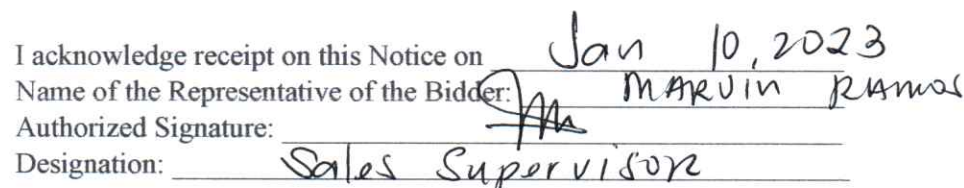 I acknowledge receipt on this Notice on Jan 10, 2023
Name of the Representative of the Bidder: MARVIN RAMOS
Authorized Signature:
Designation: Sales Supervisor